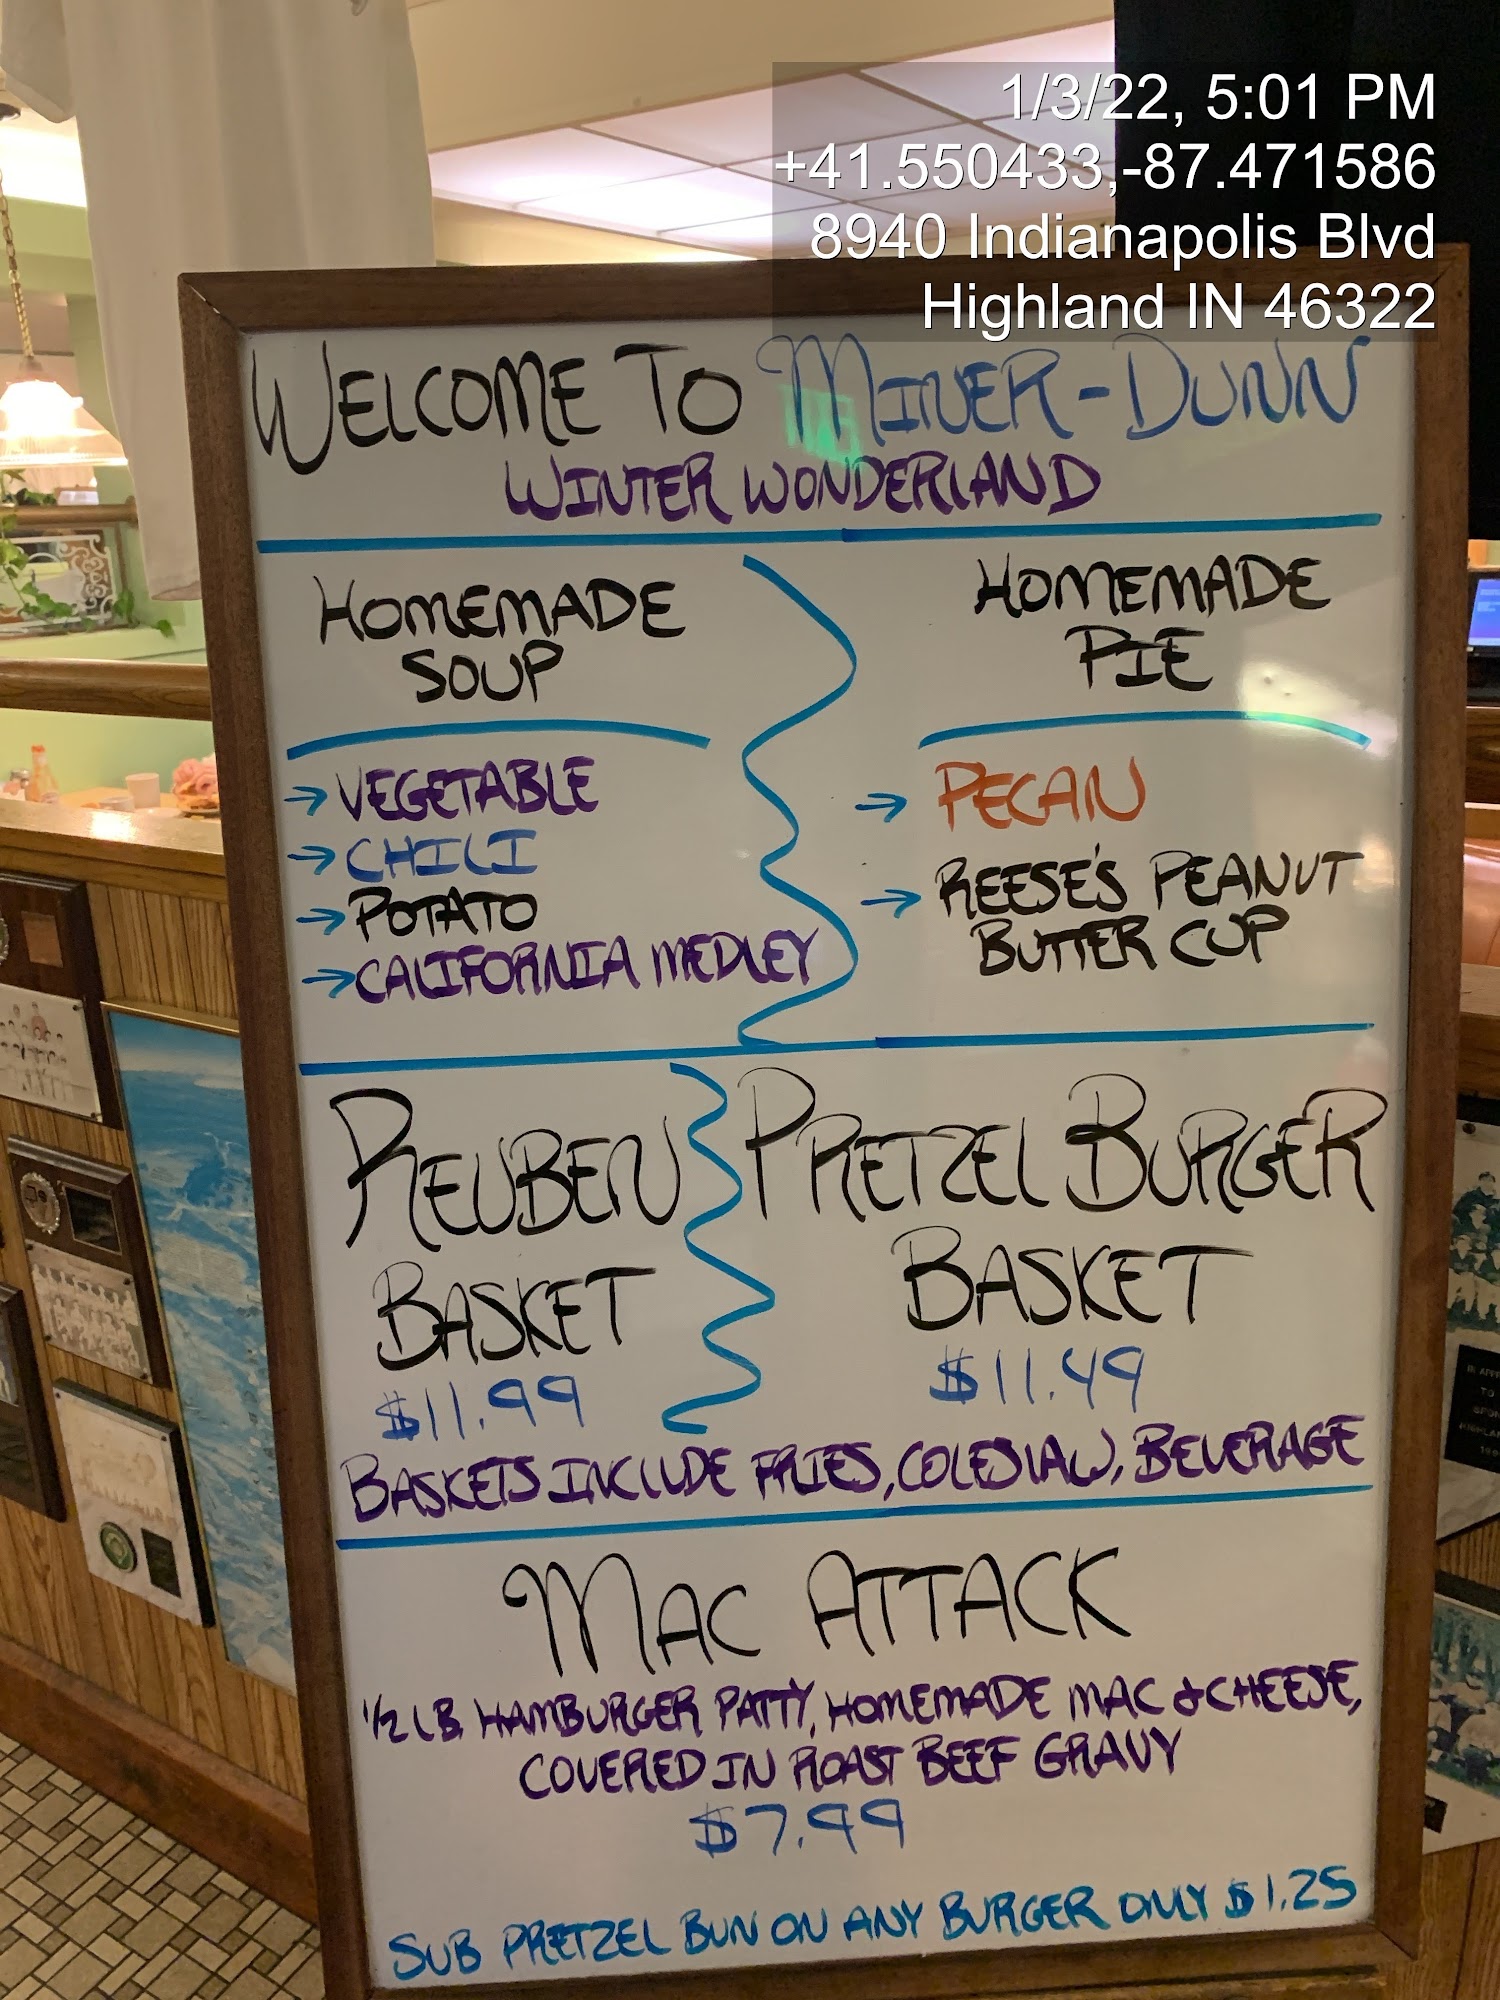 1/3/22, 5:01 PM
+41.550433,-87.471586
8940 Indianapolis Blvd
Highland IN 46322
WELCOME TO MINER-DUNN
WINTER WONDERLAND
HOMEMADE
SOUP
→ VEGETABLE
→ CHILI
→ POTATO
→ CALIFORNIA MEDLEY
HOMEMADE
PIE
→ PECAN
→ REESE'S PEANUT
BUTTER CUP
REUBEN
BASKET
$11.99
PRETZEL BURGER
BASKET
$11.49
BASKETS INCLUDE FRIES, COLESLAW, BEVERAGE
MAC ATTACK
1/2 LB HAMBURGER PATTY, HOMEMADE MAC & CHEESE,
COVERED IN ROAST BEEF GRAVY
$7.99
SUB PRETZEL BUN ON ANY BURGER ONLY $1.25